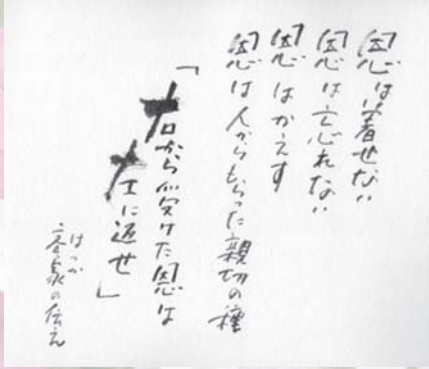 恩は着せない
恩は忘れない
恩はかえす
恩は人からもらった親切の種
「右から受けた恩は
左に返せ」
はつが
の伝え